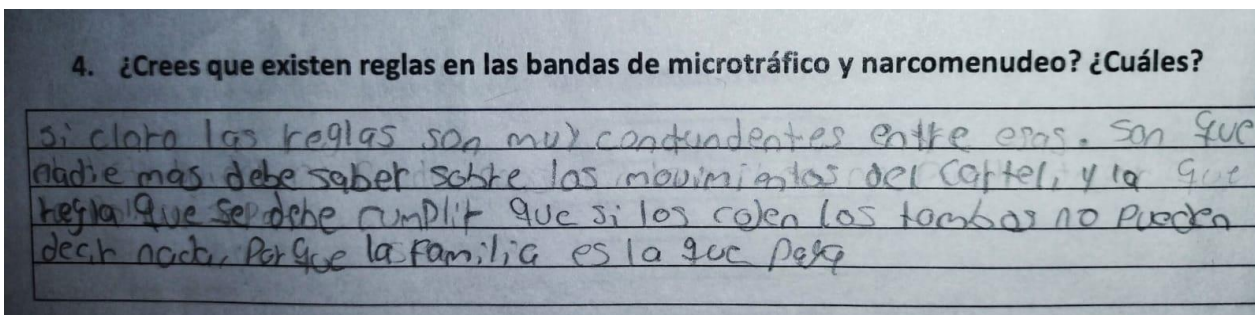 4. ¿Crees que existen reglas en las bandas de microtráfico y narcomenudeo? ¿Cuáles?
si claro las reglas son muy contundentes entre esas. son que
nadie mas debe saber sobre los movimientos del cartel, y la que
regla que se debe cumplir que si los cojen los tombos no pueden
decir nada, Porque la familia es la que paga